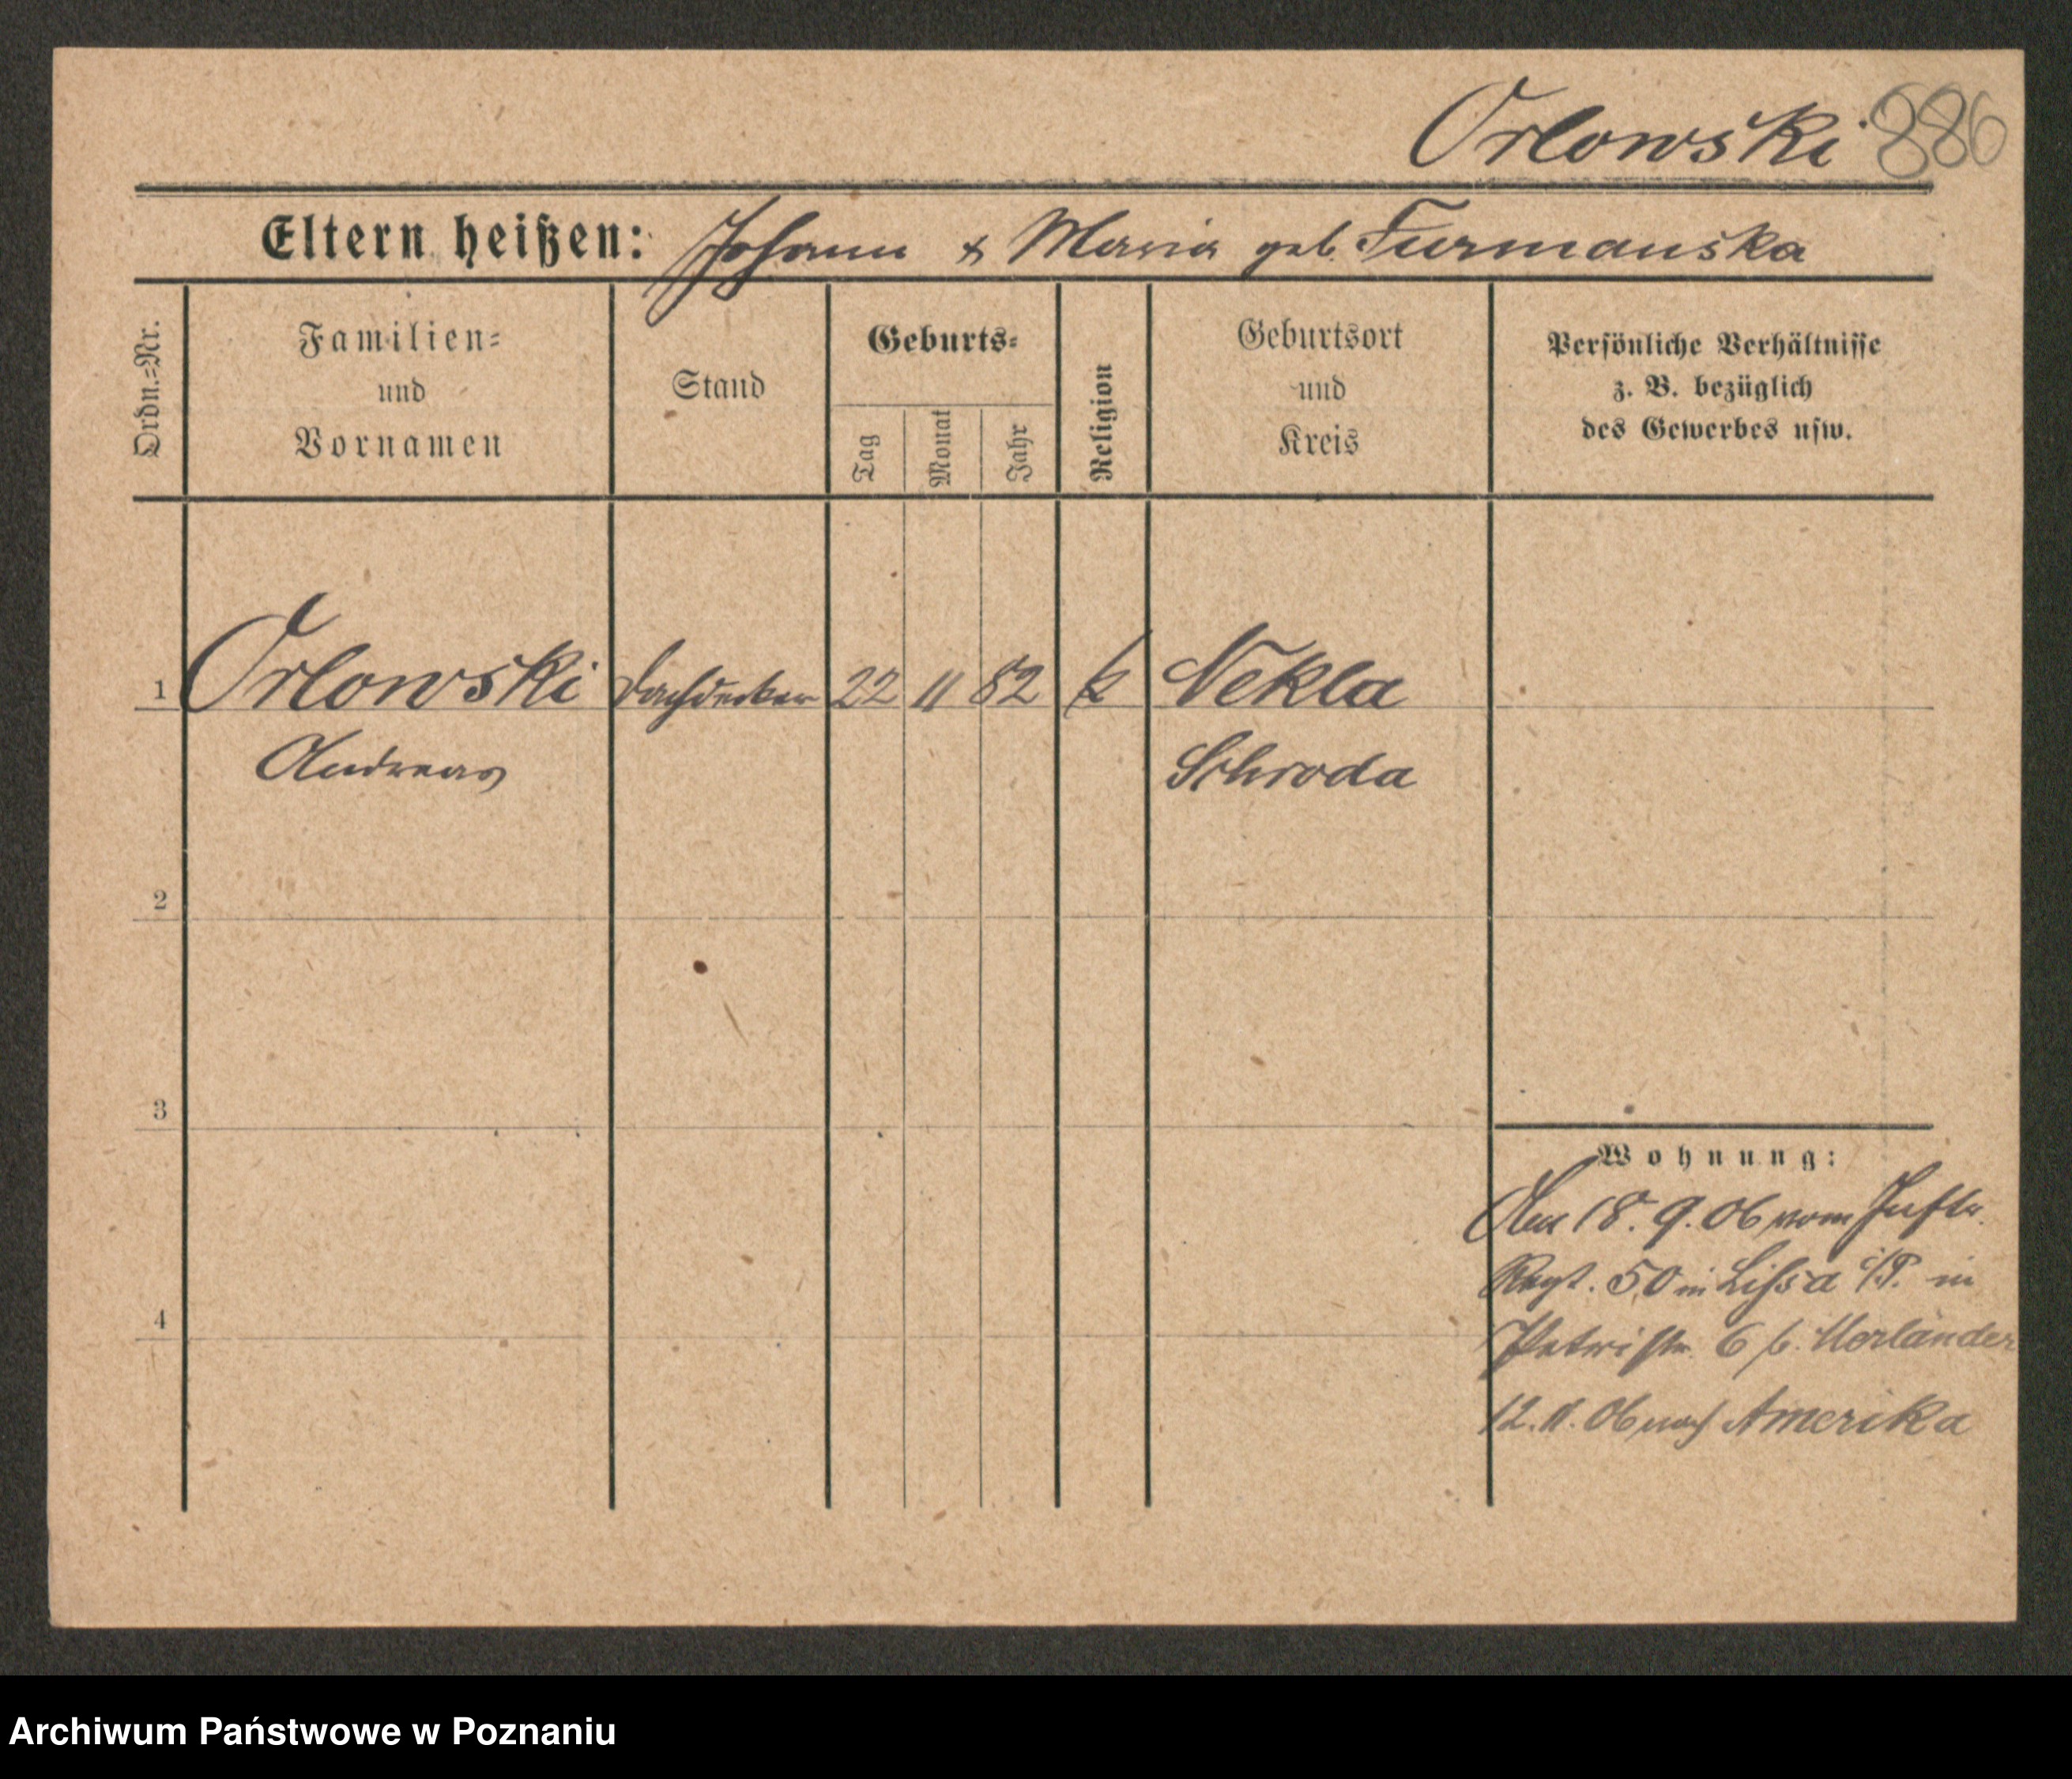 Orlowski 886
Eltern heißen: Johann & Maria geb. Furmanska
Ordn.=Nr.
Familien=
und
Vornamen
Stand
Geburts=
Tag
Monat
Jahr
Religion
Geburtsort
und
Kreis
Persönliche Verhältnisse
z. B. bezüglich
des Gewerbes usw.
1 Orlowski Dachdecker 22 11 82 k Nekla
Andreas Schroda
2
3
4
Wohnung:
Am 18. 9. 06 vom Inftr.
Regt. 50 in Lissa i/P. in
Petristr. 6 b. Vorländer
12. 11. 06 nach Amerika
Archiwum Państwowe w Poznaniu